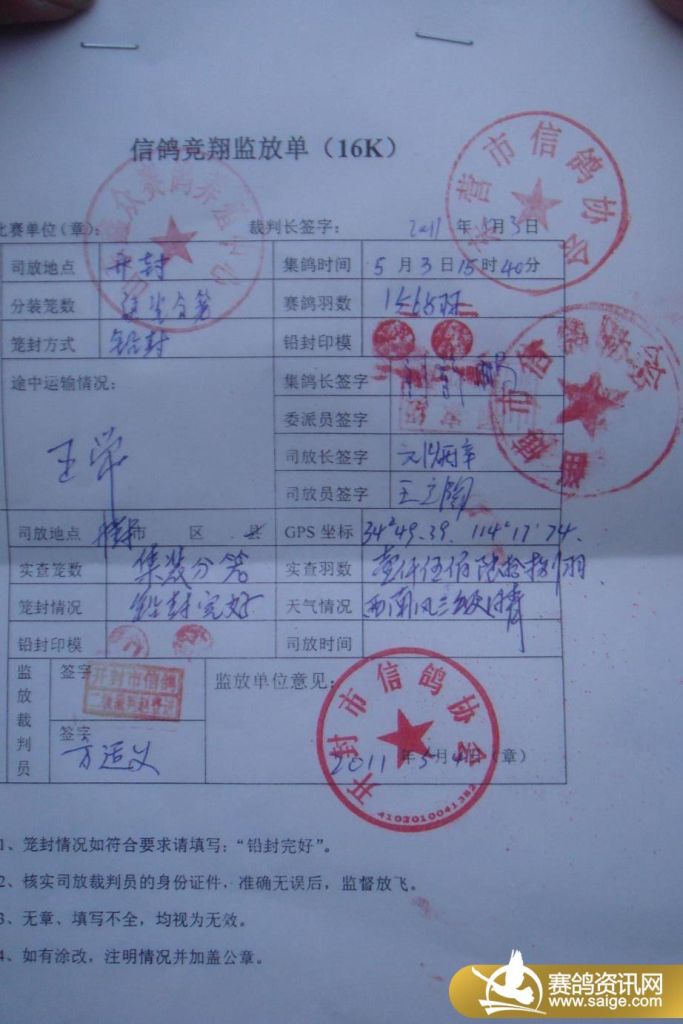 信鸽竞翔监放单（16K）
东营市信鸽协会
众赛鸽养殖中心
比赛单位(章): 裁判长签字: 2011 年 5月3日
司放地点 开封 集鸽时间 5 月 3 日 15 时 40 分
分装笼数 赛鸽羽数
笼封方式 铅封 铅封印模
途中运输情况: 集鸽长签字
委派员签字
司放长签字
王 司放员签字 王立陶
司放地点 市 区 县 GPS 坐标 34°49.39. 114°17'74.
实查笼数 集装分笼 实查羽数 壹仟伍佰陆拾捌羽
笼封情况 铅封完好 天气情况 西南风三级 晴
铅封印模 司放时间
监放裁判员 签字 监放单位意见:
开封市信鸽
签字
方运义 2011 年 5 月 4 日 (章)
开封市信鸽协会
4102010041382
1、笼封情况如符合要求请填写:“铅封完好”。
2、核实司放裁判员的身份证件，准确无误后，监督放飞。
3、无章、填写不全，均视为无效。
4、如有涂改，注明情况并加盖公章。
赛鸽资讯网
www.saige.com